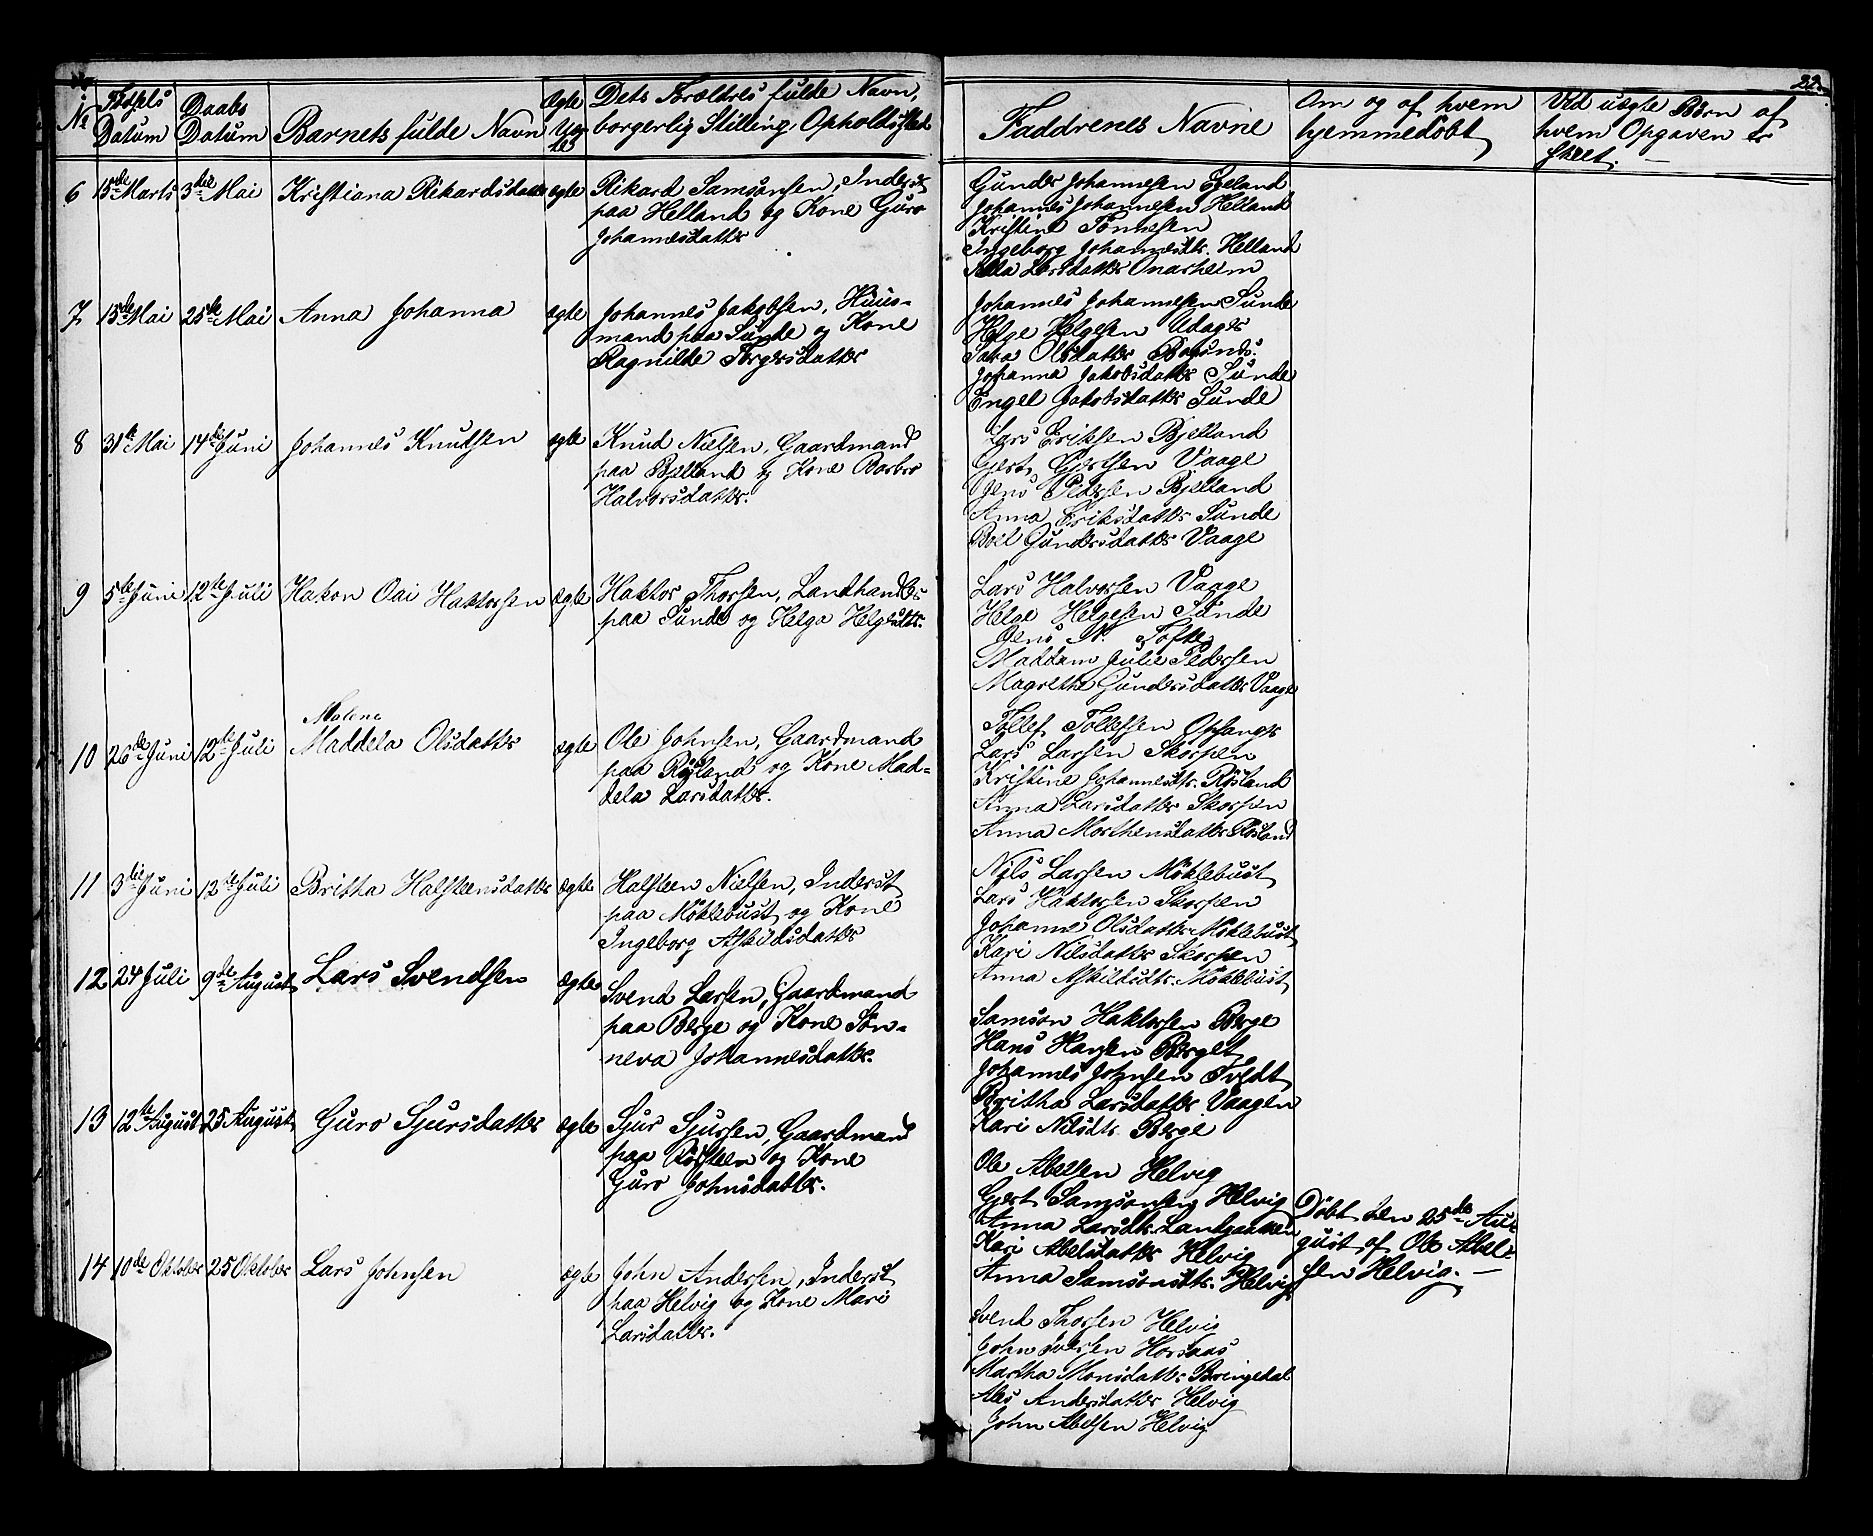 22.
No
Fødsels Datum
Daabs Datum
Barnets fulde Navn
Ægte Uægte
Dets Forældres fulde Navn, borgerlig Stilling, Opholdssted
Faddrenes Navne
Om og af hvem hjemmedøbt
Ved uægte Børn af hvem Opgaven er skeet. —
6 15de Marts 3die Mai Kristiana Rikardsdatter ægte
Rikard Samsonsen, Inderst
paa Helland og Kone Guro
Johannesdatter
Gunder Johannesen Eeland
Johannes Johannesen Helland
Kristine Tonnesen
Ingeborg Johannesdtr. Helland
Larsdatter Onarheim
7 15de Mai 25de Mai Anna Johanna ægte
Johannes Jakobsen, Huus-
mand paa Sunde og Kone
Ragnilde Torgersdatter
Johannes Johannesen Sunde
Helge Helgesen
Sara Olsdatter
Johanna Jakobsdatter Sunde
Engel Jakobsdatter Sunde
8 31te Mai 14de Juni Johannes Knudsen ægte
Knud Nielsen, Gaardmand
paa Bjelland og Kone Barbro
Halvorsdatter.
Lars Eriksen Bjelland
Gjert Gjertsen Vaage
Jens Pedersen Bjelland
Anna Eriksdatter Sunde
Boel Gundersdatter Vaage
9 5te Juni 12te Juli Hakon Oai Haktorsen ægte
Haktor Thorsen, Landhandler
paa Sunde og Helga Helgesdtr.
Lars Halvorsen Vaage
Helge Helgesen Sunde
Jens N. Tofte
Maddam Julie Pedersen
Magrethe Gundersdatter Vaage
Malene
10 26de Juni 12te Juli Maddela Olsdatter ægte
Ole Johnsen, Gaardmand
paa Røsland og Kone Mad-
dela Larsdatter.
Tollef Tollefsen Opsanger
Lars Larsen Skorpen
Kristine Johannesdtr. Røsland
Anna Larsdatter Skorpen
Anna Morthensdatter Røsland
11 3die Juni 12te Juli Britha Halsteensdatter ægte
Halsteen Nielsen, Inderst
paa Møklebust og Kone
Ingeborg Askildsdatter
Nils Larsen Møklebust
Lars Haktorsen Skorpen
Johanne Olsdatter Møklebust
Kari Nilsdatter Skorpen
Anna Askildsdtr. Møklebust
12 24 Juli 9de August Lars Svendsen ægte
Svend Larsen, Gaardmand
paa Berge og Kone Søn-
neva Johannesdatter.
Samson Haktorsen Berge
Hans Hansen Berget
Johannes Johnsen Tvedt
Britha Larsdatter Vaagen
Kari Nilsdtr. Berge
13 12te August 25 August Guro Sjursdatter ægte
Sjur Sjursen, Gaardmand
paa og Kone
Guro Johnsdatter.
Ole Abelsen Helvig
Gjert Samsonsen Helvig
Anna Larsdtr.
Kari Abelsdatter Helvig
Anna Samsonsdtr. Helvig
Døbt den 25de Au-
gust af Ole Abel-
sen Helvig. —
14 10de Oktober 25 Oktober Lars Johnsen ægte
John Andersen, Inderst
paa Helvig og Kone Mari
Larsdatter.
Svend Thorsen Helvig
John Iversen
Martha Monsdatter Bringedal
Ales Andersdatter Helvig
John Abelsen Helvig